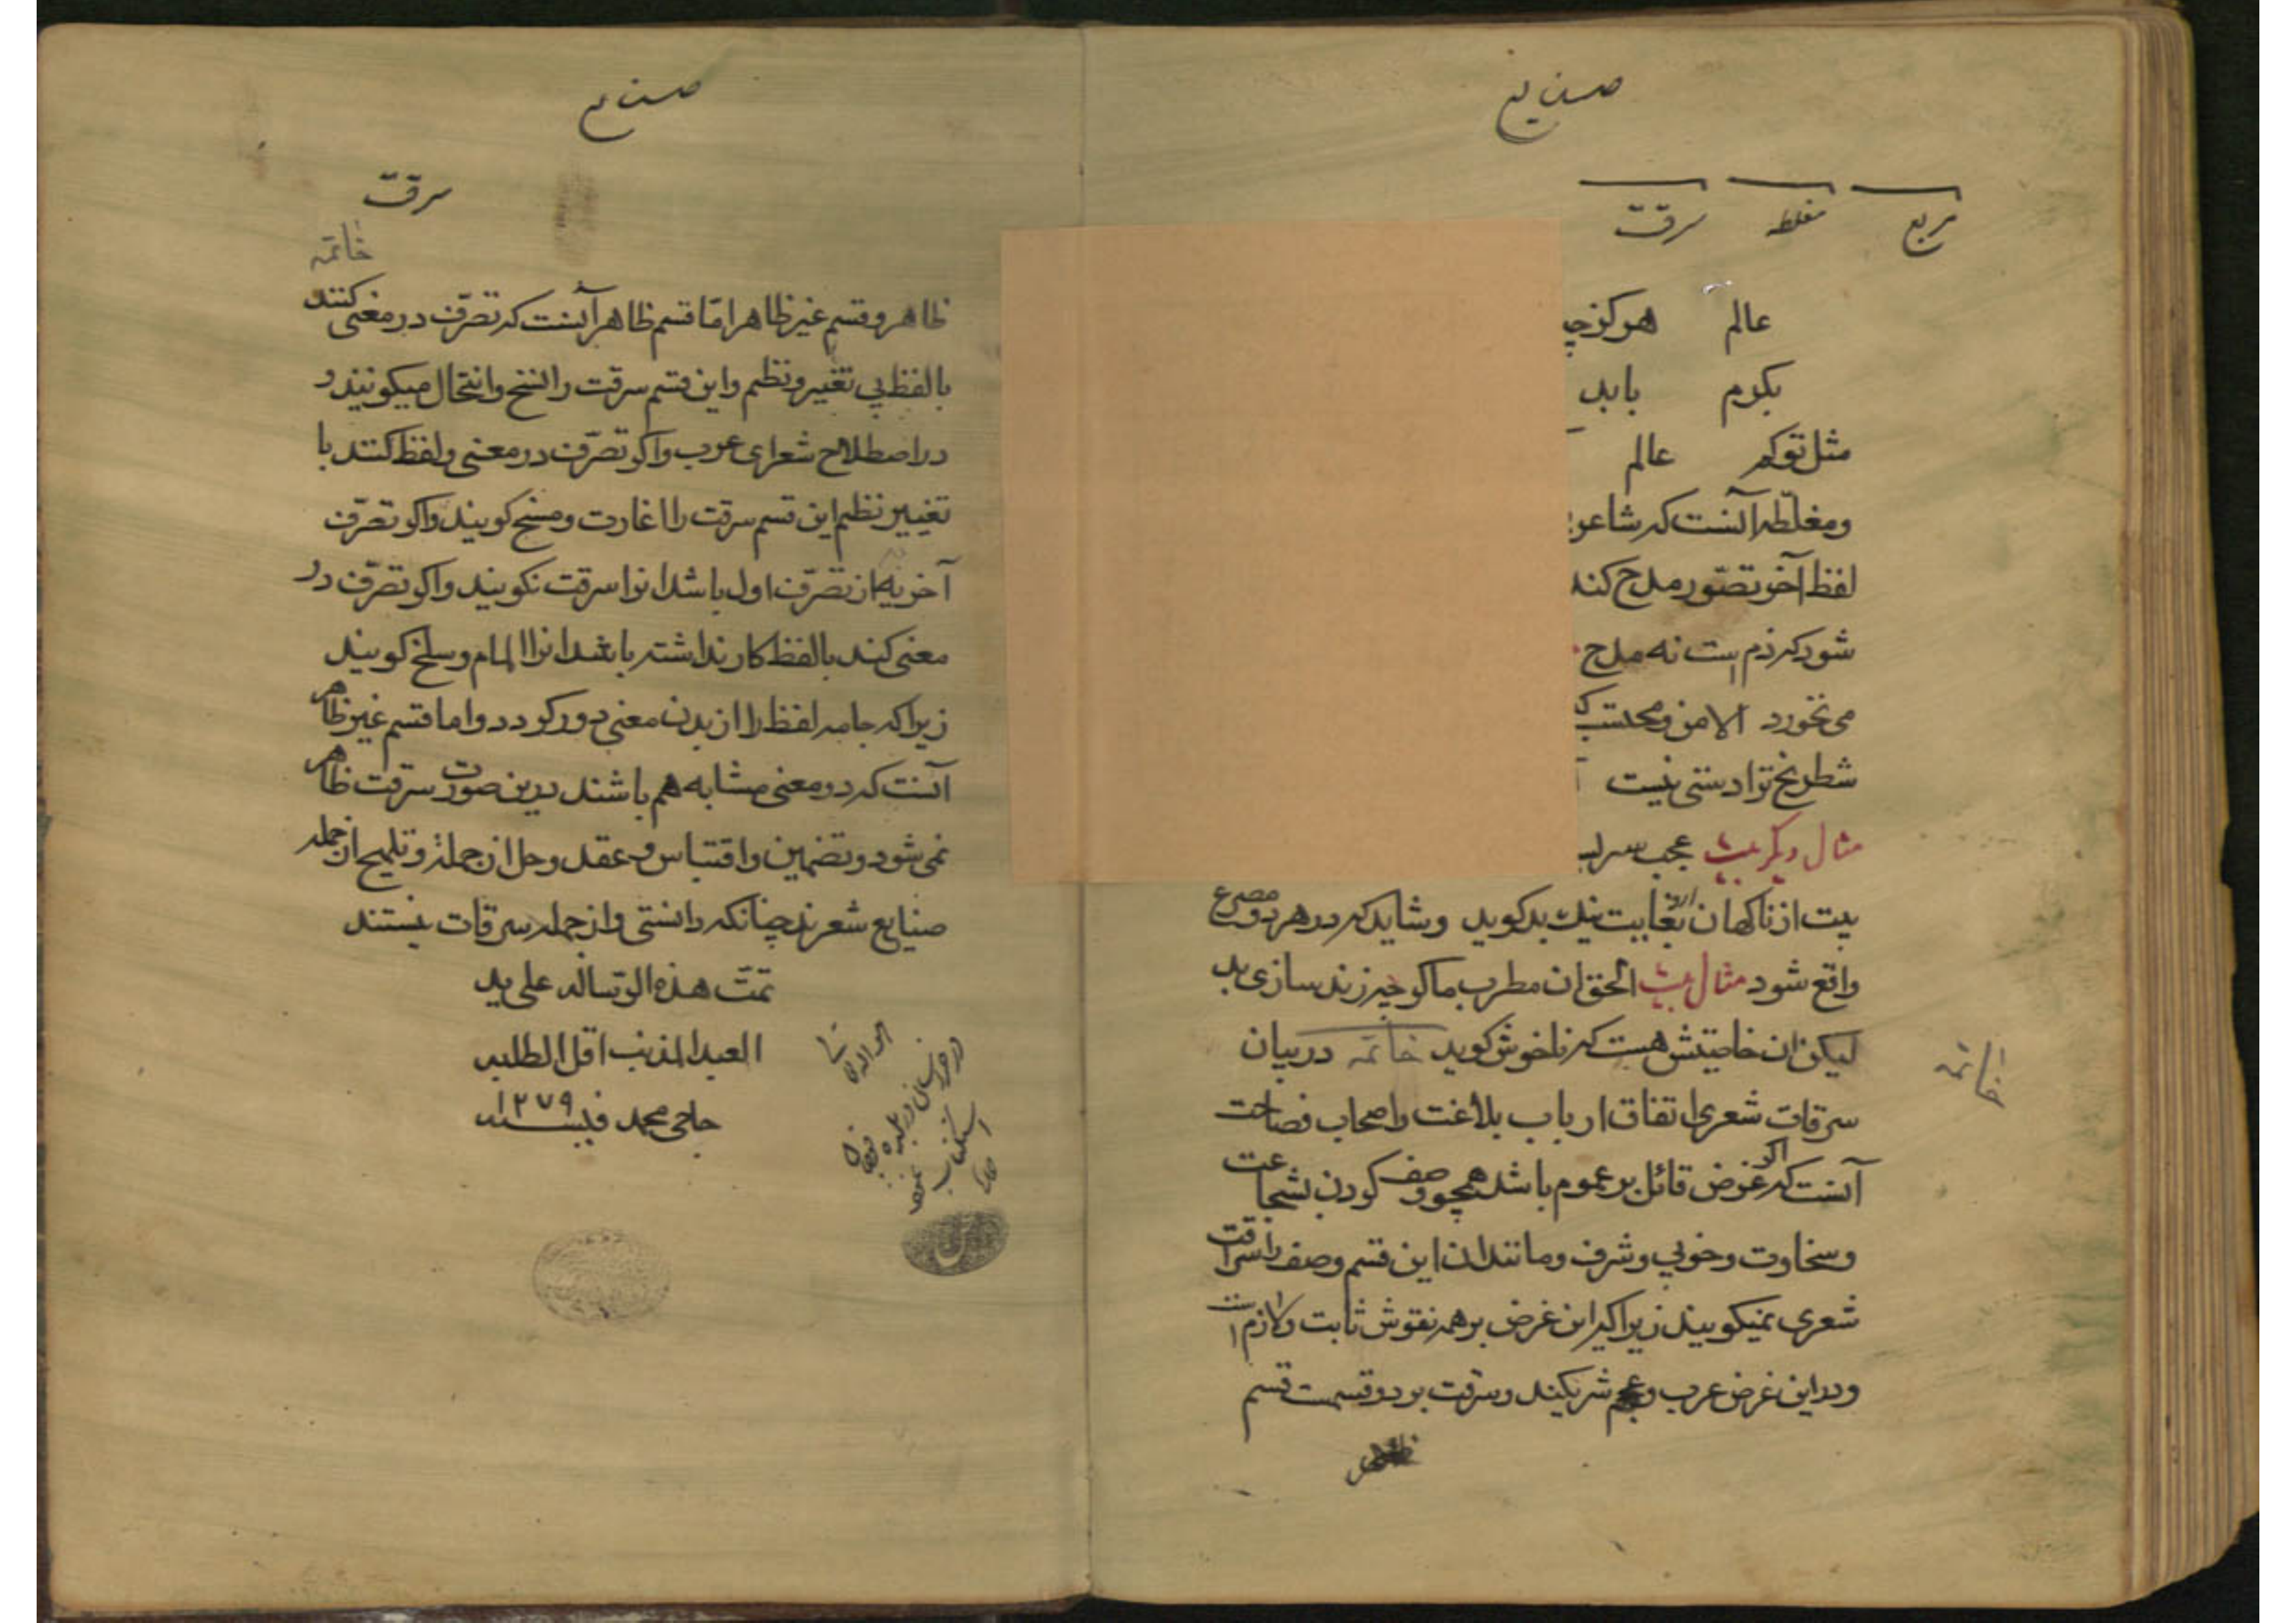 صنایع
مربع مغلطه سرقت
عالم هرگز
بکرم باید
مثل توکه عالم
ومغلّطه آنست که شاعر
لفظ آخر تصوّر مدح کند
شود که ذم است نه مدح
می نخورد الامن ومحتسب
شطرنج ترا دستی نیست
مثال دیگر بیت عجب
بیت از ناکهان بغایت نیك بد کوید وشاید که در هر دو مصرع
واقع شود مثال بیت الحق ان مطرب ما کرچه زند سازی بد
لیکن ان خاصیتش هست که ناخوش کوید خاتمه در بیان
خاتمه
سرقات شعری اتفاق ارباب بلاغت واصحاب فصاحت
آنست که اکر غرض قائل بر عموم باشد همچو وصف کردن بشجاعت
وسخاوت وخوبی وشرف ومانند ان این قسم وصف را سرقت
شعری نمیکویند زیرا که این غرض بر همه نقوش ثابت ولازم است
ودر این غرض عرب وعجم شریکند وسرقت بر دو قسمت قسم
صنایع
سرقت
خاتمه
ظاهر وقسم غیر ظاهر امّا قسم ظاهر آنست که تصرّف در معنی کنند
با لفظ بی تغییر ونظم واین قسم سرقت را نسخ وانتحال میکویند و
در اصطلاح شعرای عرب واکر تصرّف در معنی ولفظ کنند با
تغییر نظم این قسم سرقت را اغارت ومسخ کویند واکر تصرّف
آخر به از تصرّف اول باشد انرا سرقت نکویند واکر تصرّف در
معنی کند با لفظ کار نداشته باشد انرا المام وسلخ کویند
زیرا که جامه لفظ را از بدن معنی دور کردد واما قسم غیر ظاهر
آنست که دو معنی مشابه هم باشند درین صورت سرقت ظاهر
نمی شود وتضمین واقتباس وعقد وحل از جمله وتلمیح از جمله
صنایع شعرند چنانکه دانستی واز جمله سرقات نیستند
تمّت هذه الرّساله علی ید
العبد المذنب اقل الطلبه
حاجی محمد فی سنه ۱۲۷۹